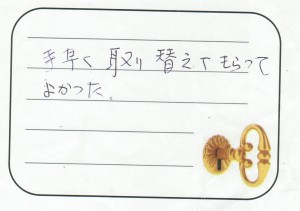 手早く取り替えてもらって
よかった。